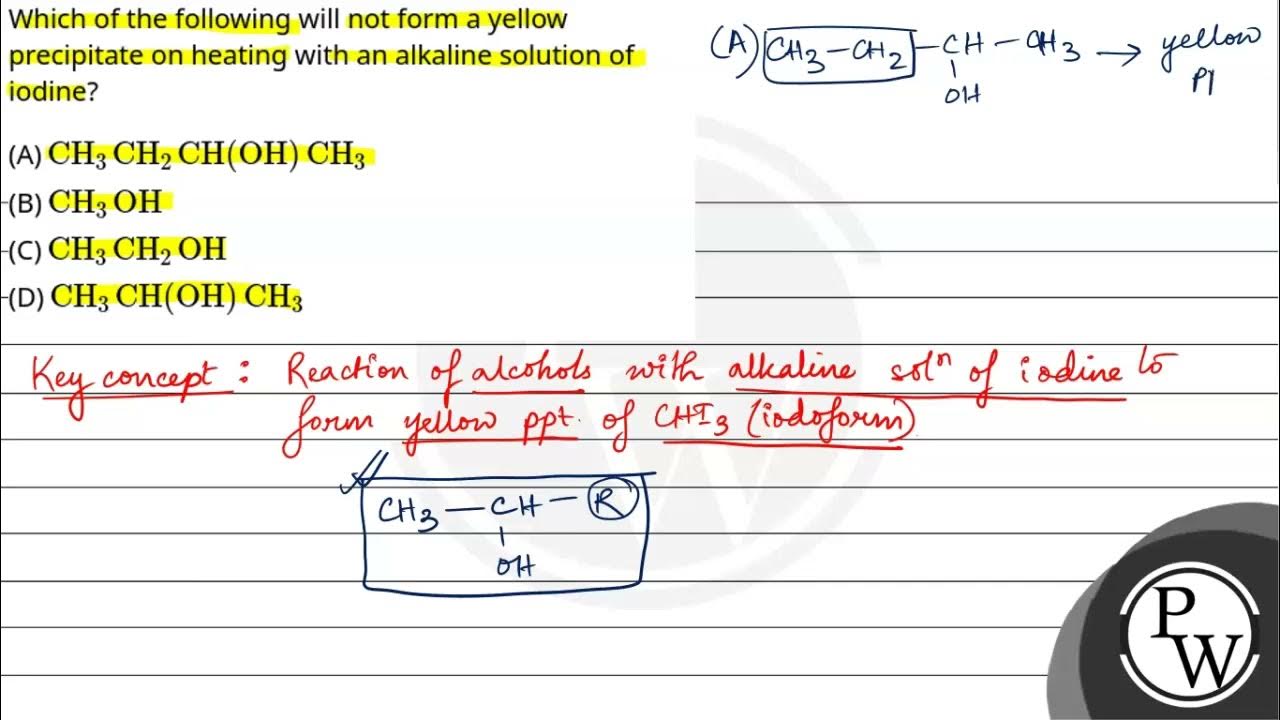 Which of the following will not form a yellow
precipitate on heating with an alkaline solution of
iodine?
(A) CH₃ CH₂ CH(OH) CH₃
(B) CH₃ OH
(C) CH₃ CH₂ OH
(D) CH₃ CH(OH) CH₃
(A) CH₃ – CH₂ – CH – CH₃ → yellow
OH
Key concept : Reaction of alcohols with alkaline solⁿ of iodine to
form yellow ppt. of CHI₃ (iodoform)
CH₃ – CH – R
OH
P
W